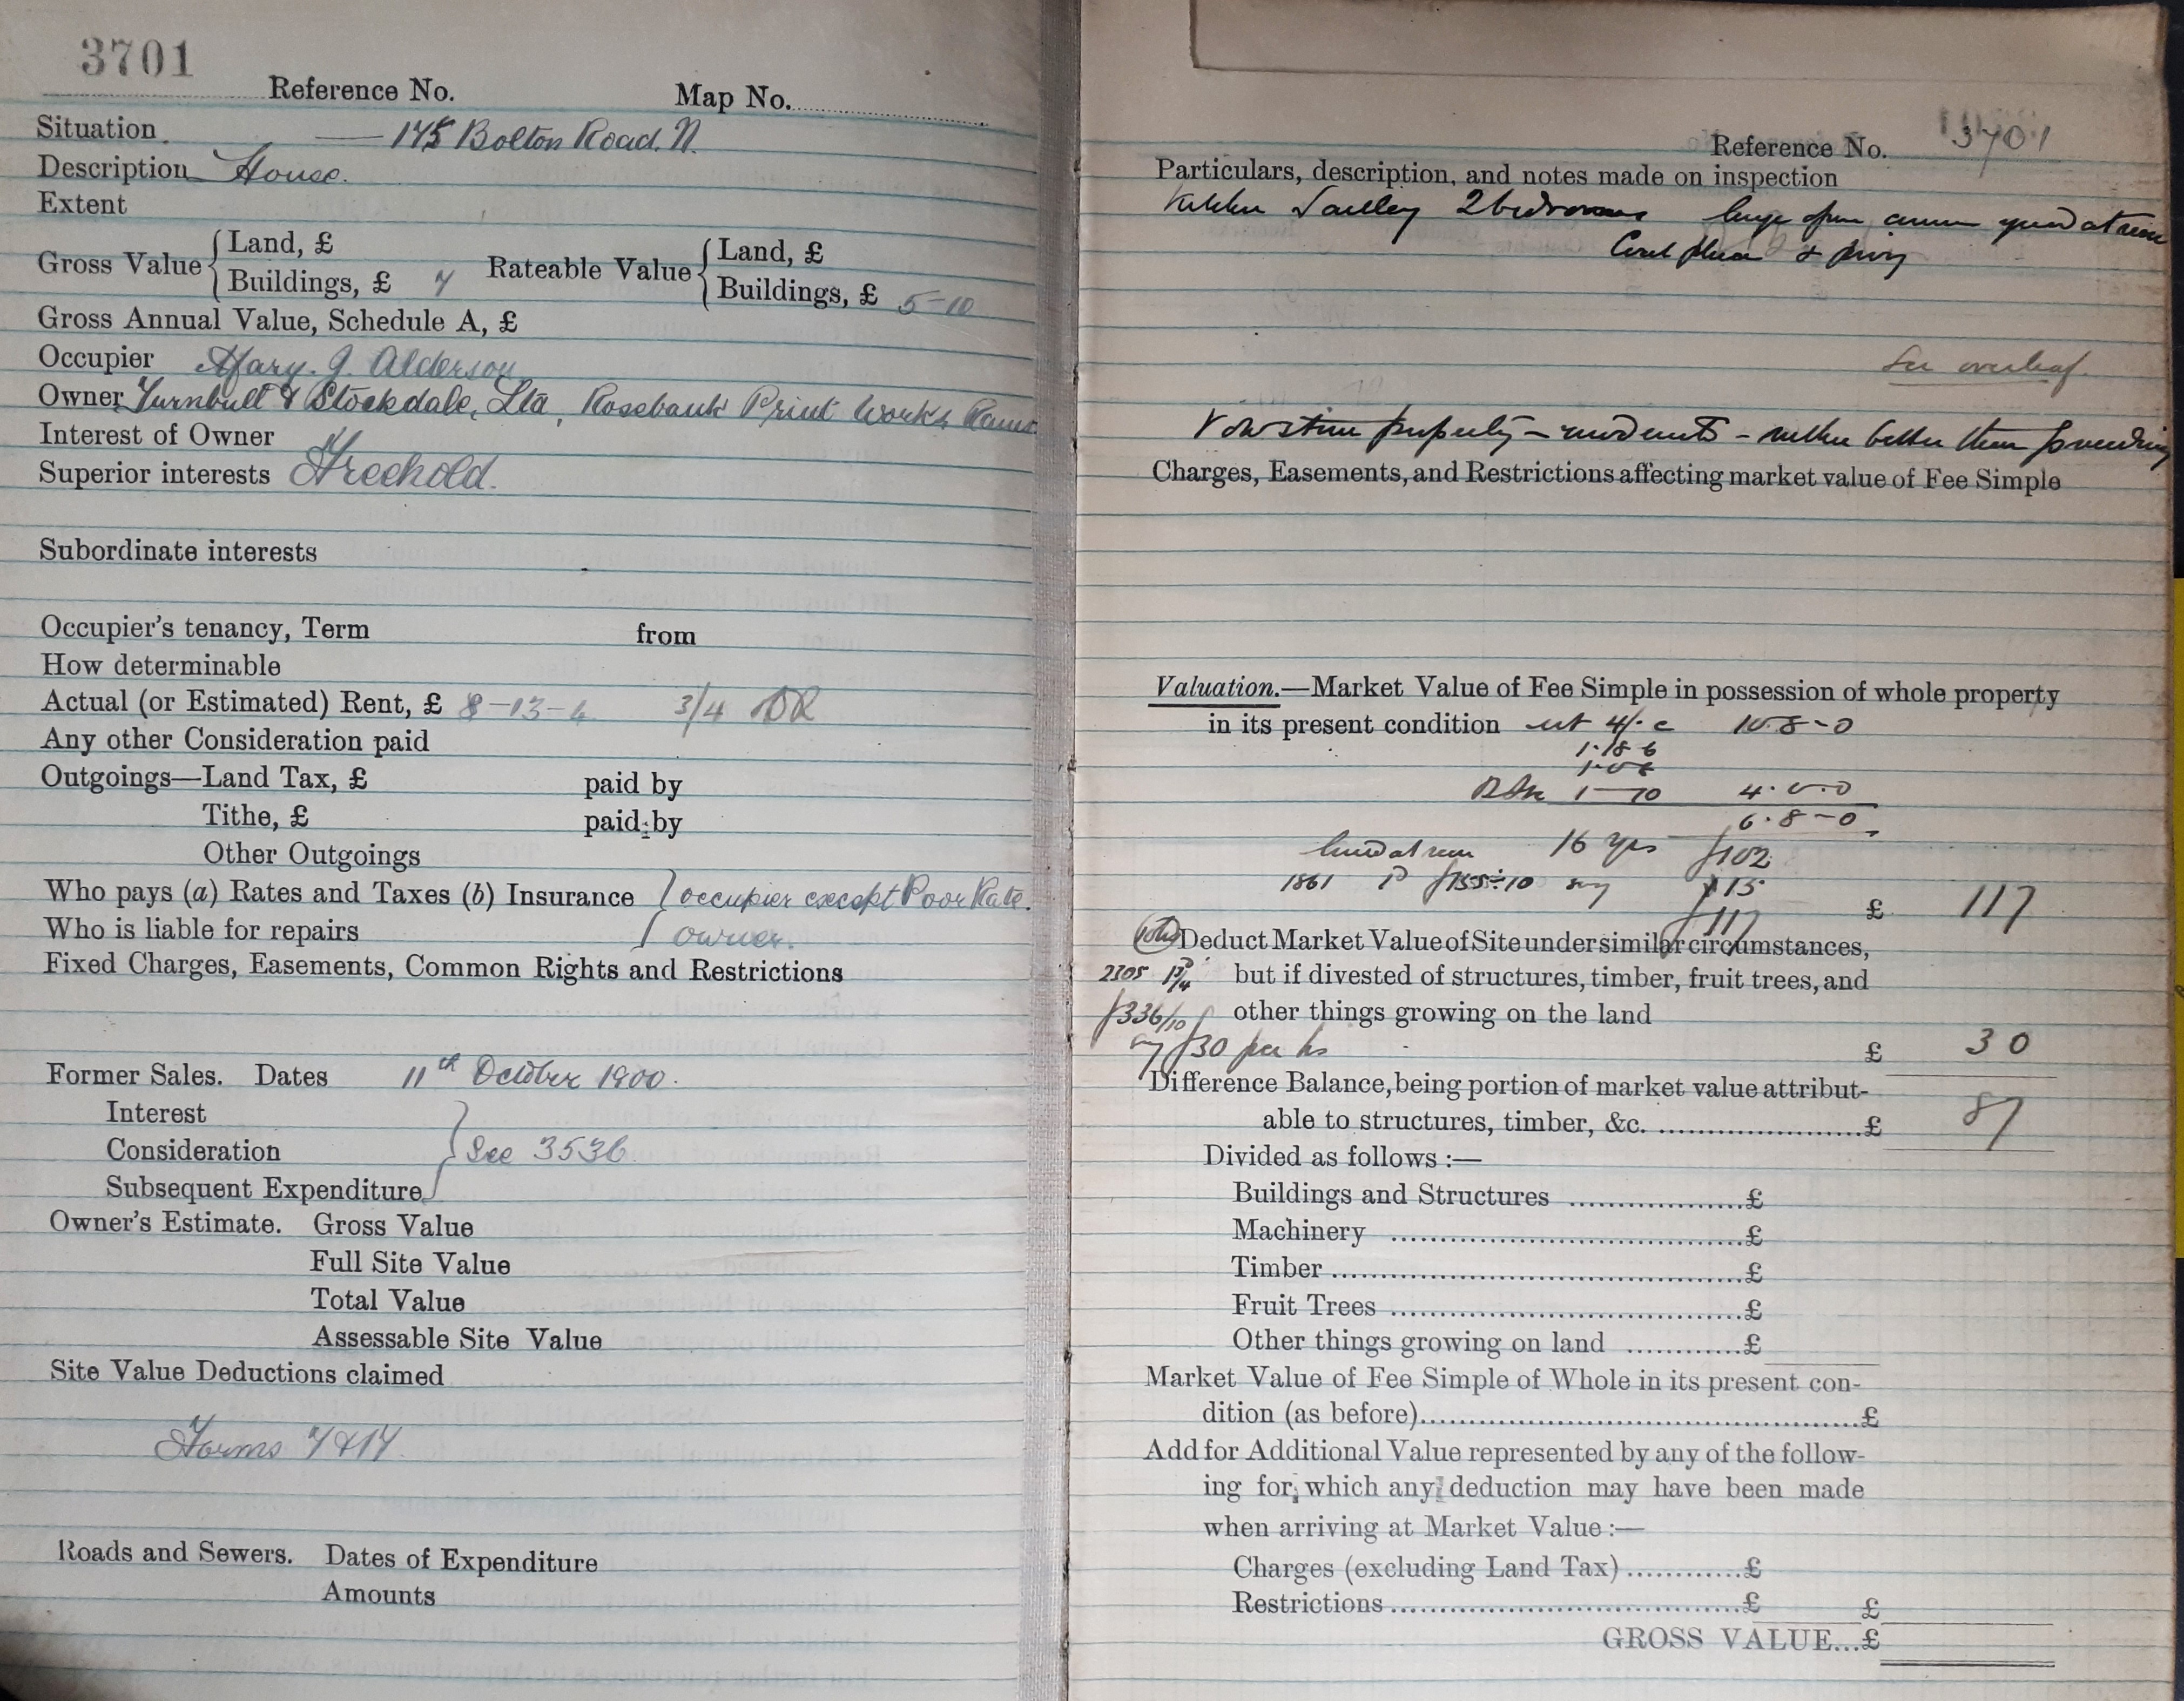 3701
Reference No. Map No.
Situation 175 Bolton Road. N.
Description House.
Extent
Gross Value { Land, £
Buildings, £ 7
Rateable Value { Land, £
Buildings, £ 5-10
Gross Annual Value, Schedule A, £
Occupier Mary. J. Alderson
Owner Turnbull & Stockdale, Ltd, Rosebank Print Works Rams
Interest of Owner
Superior interests Freehold.
Subordinate interests
Occupier's tenancy, Term from
How determinable
Actual (or Estimated) Rent, £ 8-13-4 3/4
Any other Consideration paid
Outgoings—Land Tax, £ paid by
Tithe, £ paid by
Other Outgoings
Who pays (a) Rates and Taxes (b) Insurance } occupier except Poor Rate.
Who is liable for repairs } owner.
Fixed Charges, Easements, Common Rights and Restrictions
Former Sales. Dates 11th October 1900.
Interest
Consideration } See 3536
Subsequent Expenditure
Owner's Estimate. Gross Value
Full Site Value
Total Value
Assessable Site Value
Site Value Deductions claimed
Forms 7 & 14
Roads and Sewers. Dates of Expenditure
Amounts
Reference No. 3701
Particulars, description, and notes made on inspection
Kitchen Scullery 2 bedrooms large open common yard at rear
Coal place & privy
See overleaf.
stone property - - rather better than preceding
Charges, Easements, and Restrictions affecting market value of Fee Simple
Valuation.—Market Value of Fee Simple in possession of whole property
in its present condition 4/- 10.8-0
1.18.6
1-10 4.0.0
6.8-0
land at rear 16 yrs £102
1861 £155÷10 say £15
£117
£ 117
Deduct Market Value of Site under similar circumstances,
2305 but if divested of structures, timber, fruit trees, and
£336/10 other things growing on the land
say £30 per hs £ 30
Difference Balance, being portion of market value attribut-
able to structures, timber, &c. £ 87
Divided as follows :—
Buildings and Structures £
Machinery £
Timber £
Fruit Trees £
Other things growing on land £
Market Value of Fee Simple of Whole in its present con-
dition (as before) £
Add for Additional Value represented by any of the follow-
ing for which any deduction may have been made
when arriving at Market Value :—
Charges (excluding Land Tax) £
Restrictions £ £
GROSS VALUE...£